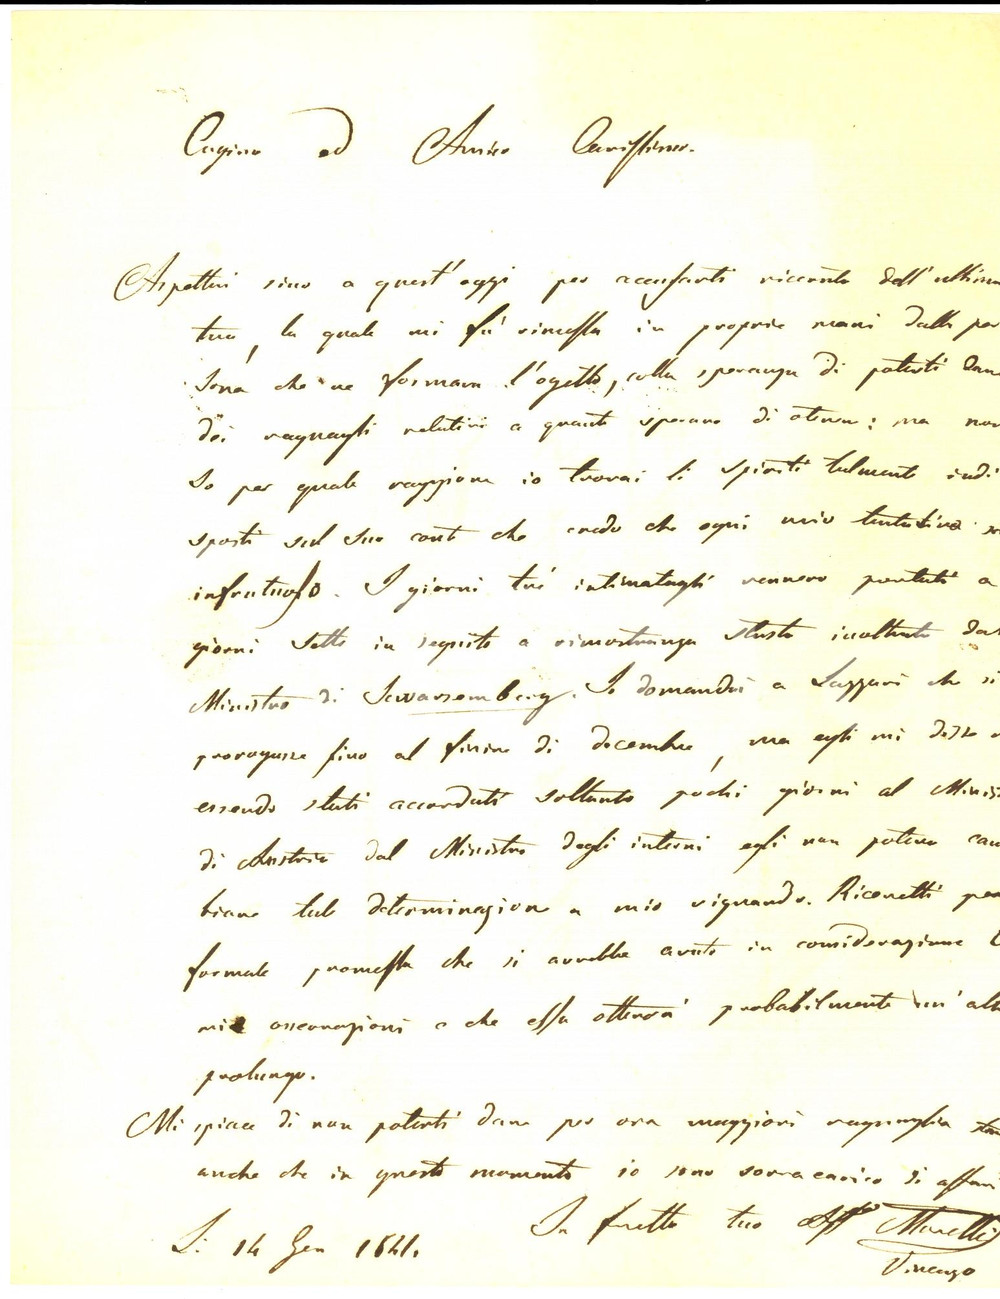 Cugino ed Amico Carissimo.
Aspettai sino a quest'oggi per accusarti ricevuta dell'ultima
tua, la quale mi fu' rimessa in proprie mani dalla per
sona che ne formava l'ogetto, colla speranza di poterti dare
dei ragnagli relativi a quanto speravo di otenere: ma non
so per quale raggione io trovai li spiriti talmente indi
sposti sul suo conto che credo che ogni mio tentativo
infrutuoso. I giorni tre intimatagli vennero portati a
giorni sette in seguito a rimostranza statta inoltrata dal
Ministro di Sewarzemberg. Io domandai a Lazzari che si
prorogasse fino al finire di decembre, ma egli mi disse
essendo stati accordati soltanto pochi giorni al Minist
di Austria dal Ministro degli interni egli non poteva cam
biare tale determinazione a mio riguardo. Ricevetti però
formale promessa che si avrebbe avuto in considerazione
mie osservazioni e che essa otterrà probabilmente un' alt
prolungo.
Mi spiace di non poterti dare per ora maggiori ragnaglia
anche che in questo momento io sono sovracarico di affari
In fretta tuo Aff.mo Moretti
Vincenzo
Li 14 Gen 1841.